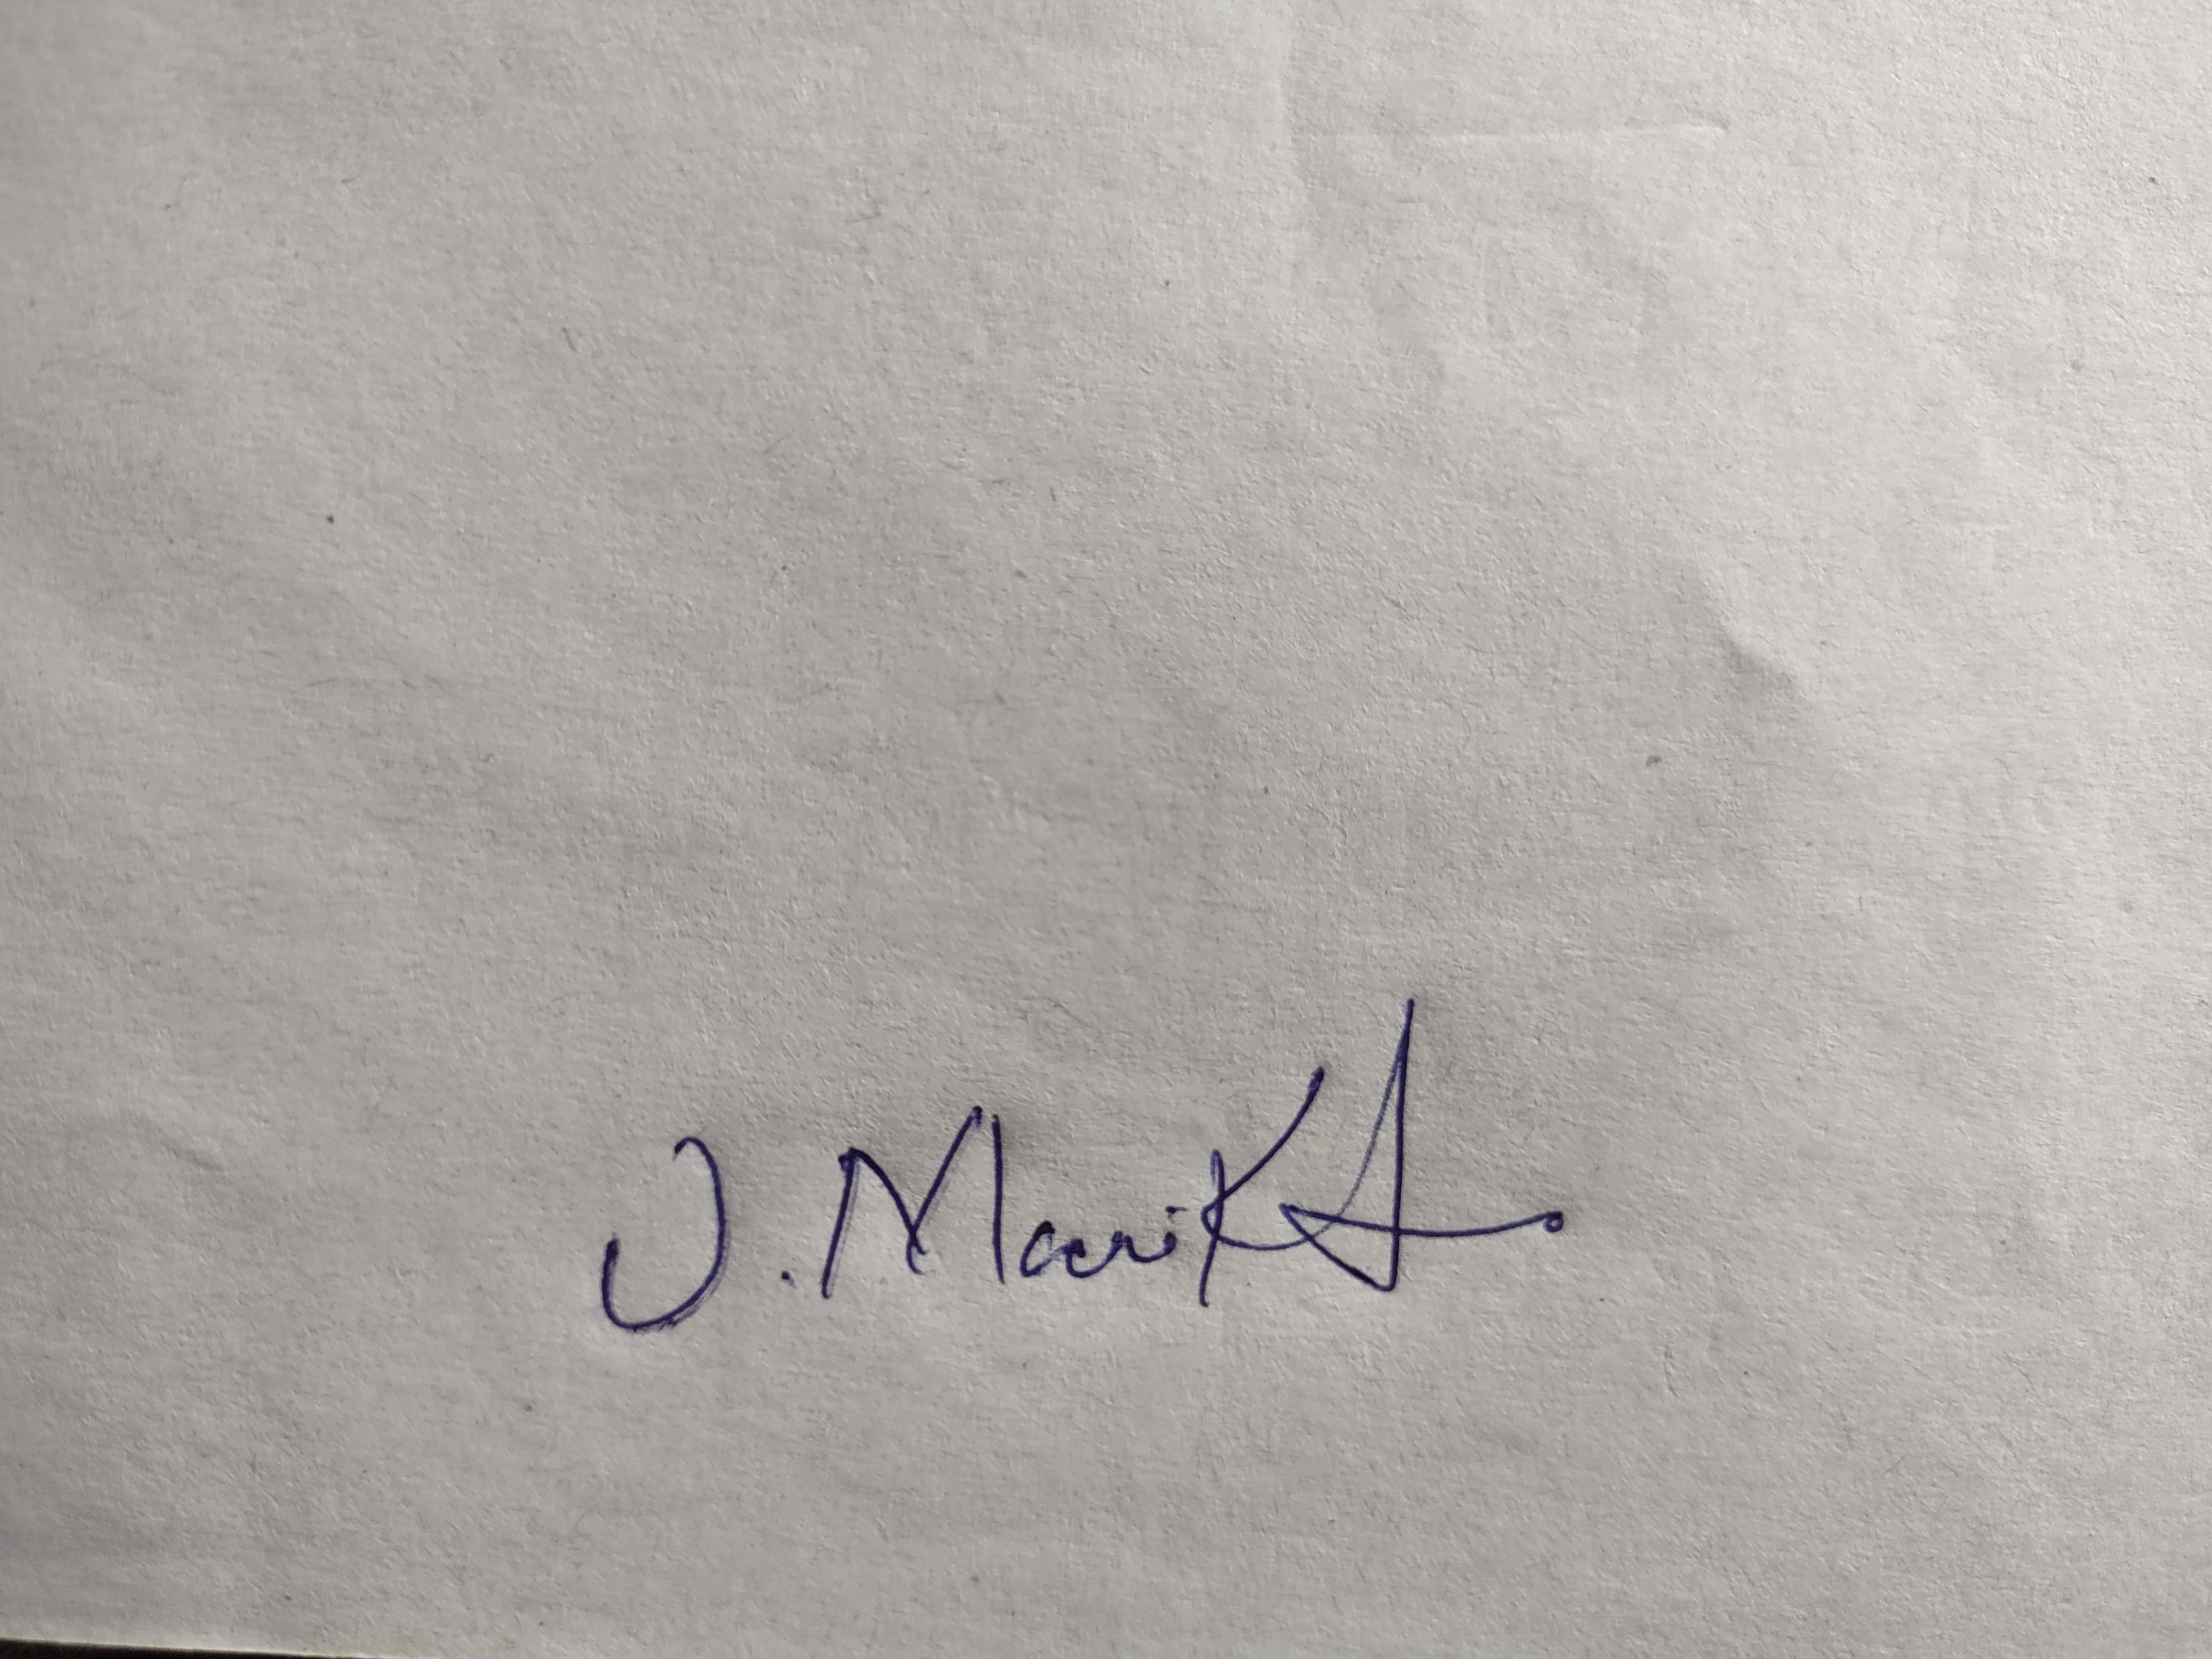 J. MaariKA